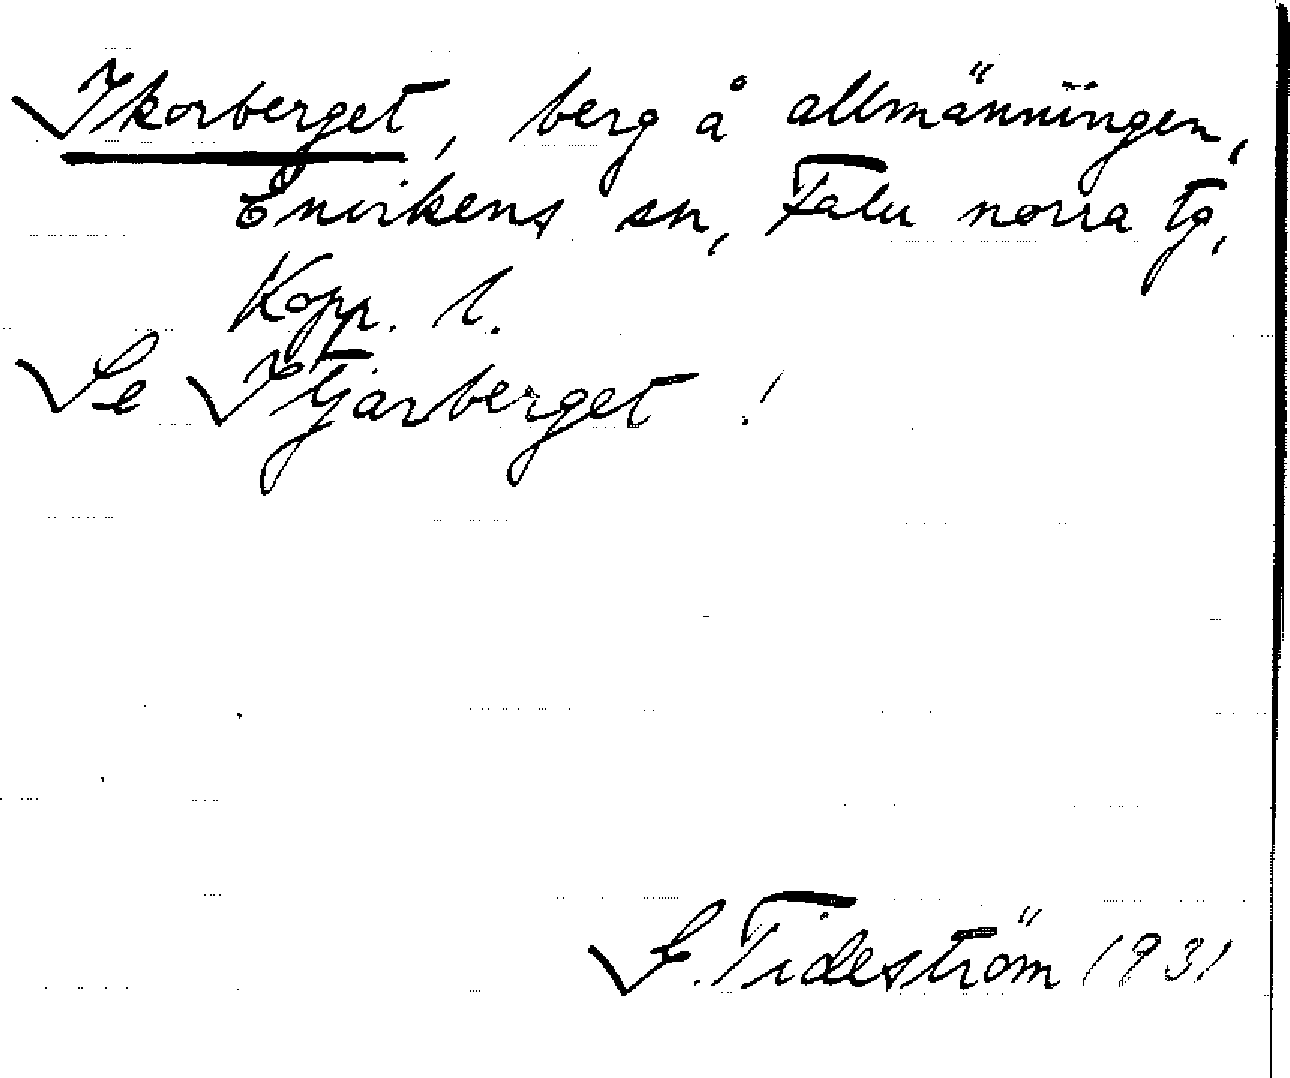 Skorberget, berg å allmänningen,
Envikens sn, Falu norra tg,
Kopp. l.
Se Stjarberget!
S. Tideström 1931